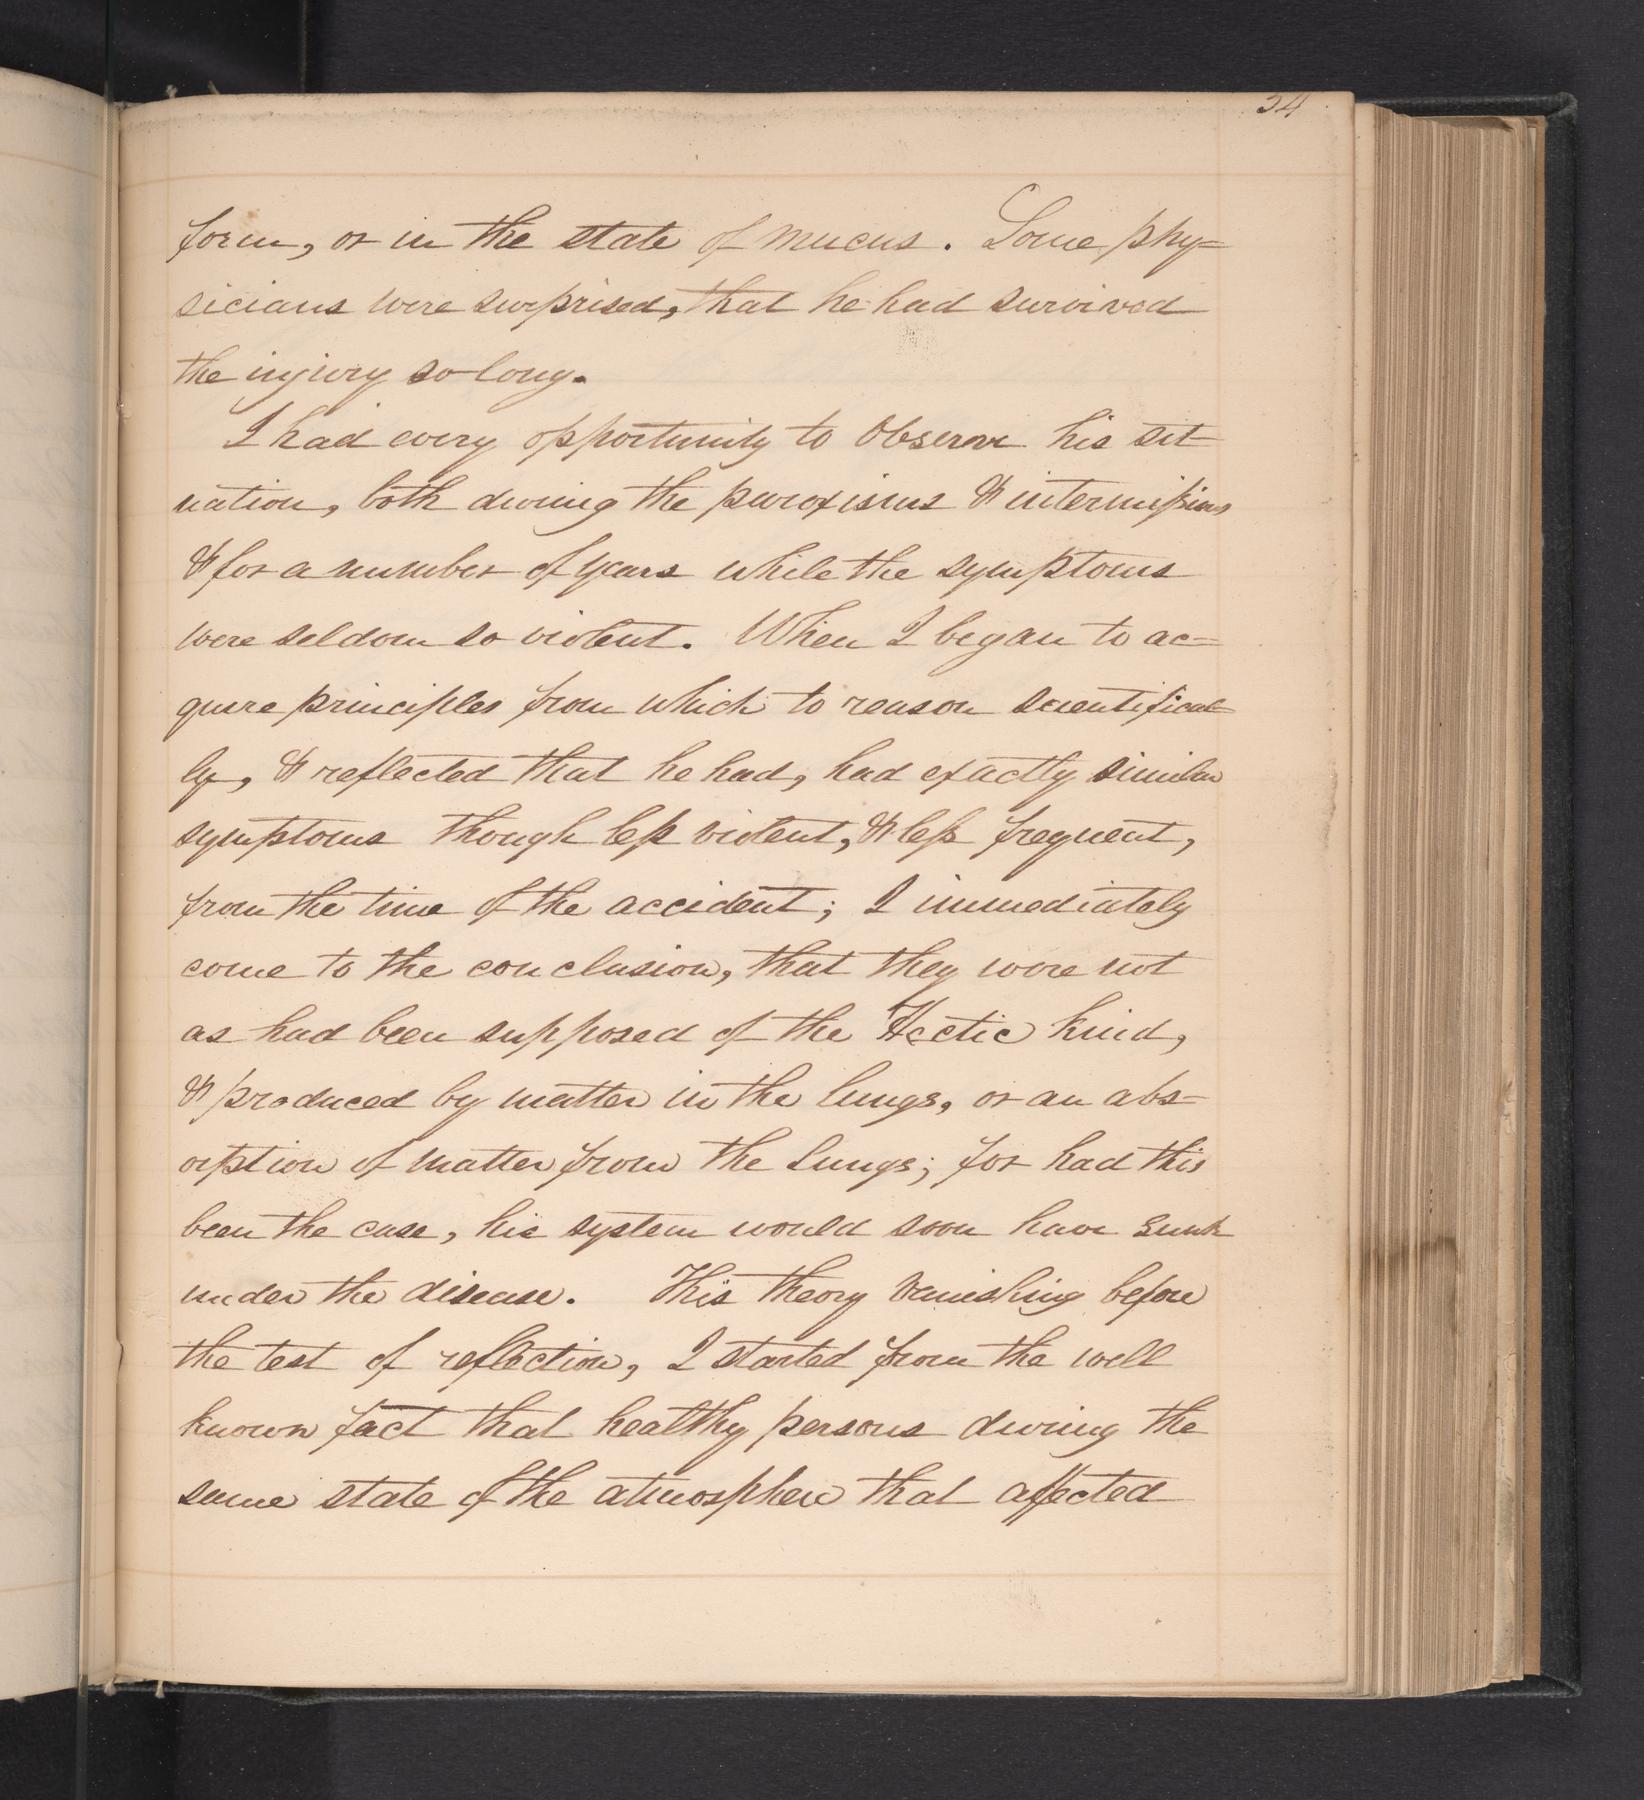 54
form, or in the state of mucus. Some phy=
sicians were surprised, that he had survived
the injury so long.
I had every opportunity to observe his sit-
uation, both during the paroxisms & intermissions
& for a number of years while the symptoms
were seldom so violent. When I began to ac=
quire principles from which to reason scientifical-
ly, & reflected that he had, had exactly similar
symptoms though less violent, & less frequent,
from the time of the accident; I immediately
come to the conclusion, that they were not
as had been supposed of the Hectic kind,
& produced by matter in the lungs, or an abs-
orption of matter from the lungs; for had this
been the case, his system would soon have sunk
under the disease. This theory vanishing before
the test of reflection, I started from the well
known fact that healthy persons during the
same state of the atmosphere that affected